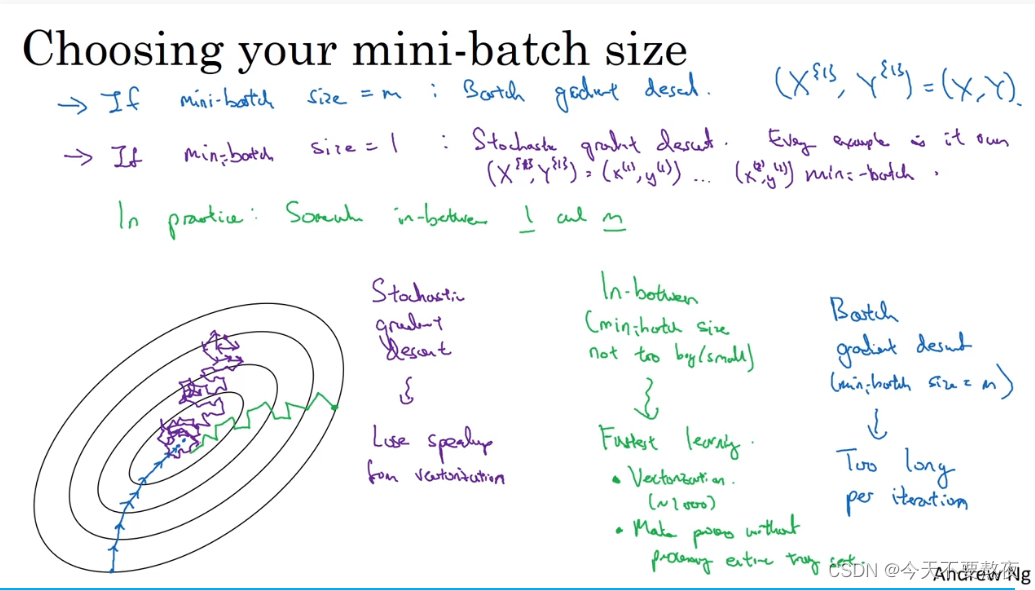 Choosing your mini-batch size
→ If mini-batch size = m : Batch gradient descent. (X^{1}, Y^{1}) = (X, Y).
→ If mini-batch size = 1 : Stochastic gradient descent. Every example is it own
(X^{1}, Y^{1}) = (x^(1), y^(1)) ... (x^(2), y^(2)) mini-batch.
In practice: Somewhere in-between 1 and m
Stochastic
gradient
descent
Lose speedup
from vectorization
In-between
(mini-batch size
not too big/small)
Fastest learning.
• Vectorization.
(~1000)
• Make progress without
processing entire training set.
Batch
gradient descent
(mini-batch size = m)
Too long
per iteration
CSDN @今天不要熬夜
Andrew Ng